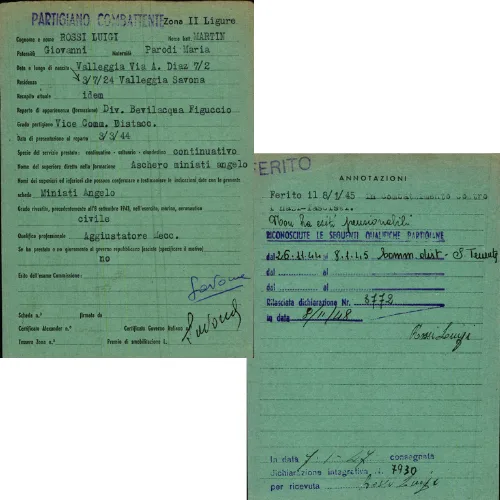 PARTIGIANO COMBATTENTE Zona II Ligure
Cognome e nome ROSSI LUIGI Nome batt. MARTIN
Paternità Giovanni Maternità Parodi Maria
Data e luogo di nascita Valleggia Via A. Diaz 7/2
Residenza 3/7/24 Valleggia Savona
Recapito attuale idem
Reparto di appartenenza (formazione) Div. Bevilacqua Figuccio
Grado partigiano Vice Comm. Distacc.
Data di presentazione al reparto 3/3/44
Specie del servizio prestato: continuativo - saltuario - clandestino continuativo
Nome del superiore diretto nella formazione Aschero miniati angelo
Nomi dei superiori ed inferiori che possono confermare e testimoniare le indicazioni date con la presente
scheda Miniati Angelo
Grado rivestito, precedentemente all'8 settembre 1943, nell'esercito, marina, aeronautica
civile
Qualifica professionale Aggiustatore Mecc.
Se ha prestato o no giuramento al governo repubblicano fascista (specificare il motivo)
no
Esito dell'esame Commissione:
Savona
Savona
Scheda n.° firmata da
Certificato Alexander n.° Certificato Governo Italiano
Tessera Anpi n.° Premio di smobilitazione L.
FERITO
ANNOTAZIONI
Ferito il 8/1/45 in combattimento contro
i Nazi-fascisti.
Non ha esiti pensionabili
RICONOSCIUTE LE SEGUENTI QUALIFICHE PARTIGIANE
dal 26.11.44 al 8.1.45 Comm. dist - S. Tenente
dal al
dal al
Rilasciata dichiarazione Nr. 8772
in data 8/11/48
Rossi Luigi
In data 7-1-47 consegnata
dichiarazione integrativa N. 7930
per ricevuta Rossi Luigi